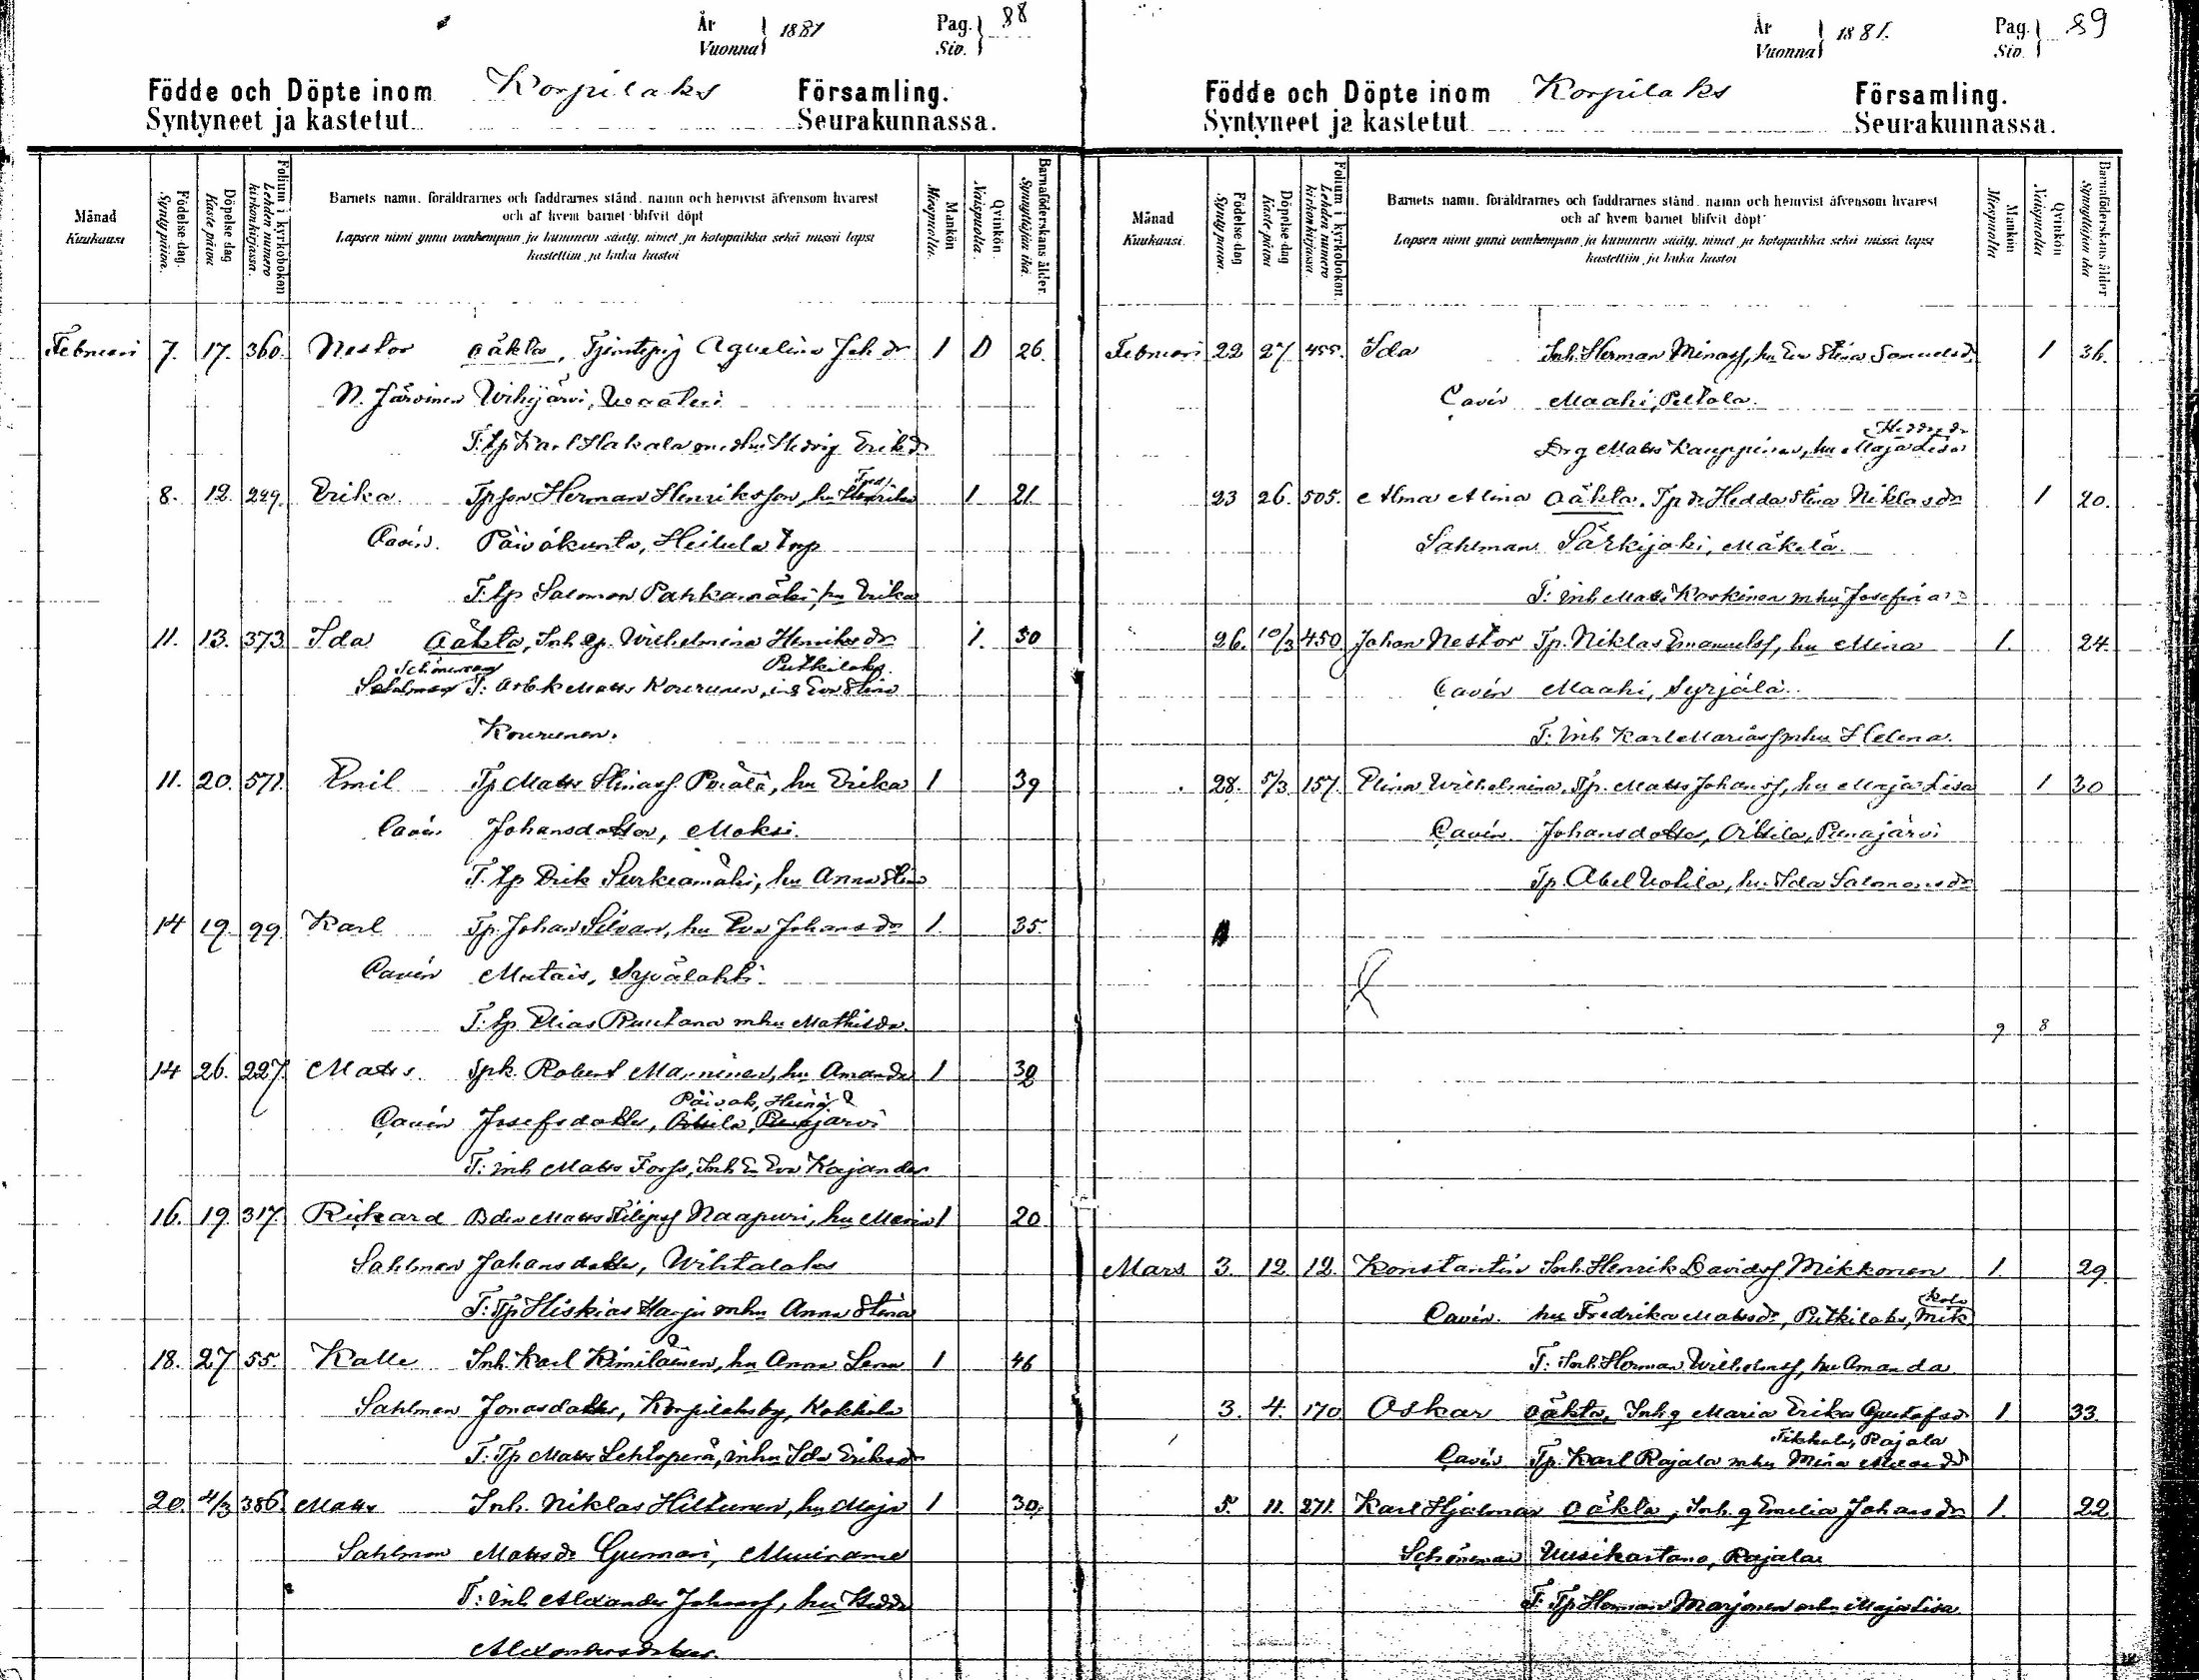 År
Vuonna
1881
Pag.
Siv.
88
Födde och Döpte inom Korpilaks Församling.
Syntyneet ja kastetut Seurakunnassa.
Månad
Kuukausi
Födelse-dag.
Syntypäivä.
Döpelse-dag
Kaste-päivä
Folium i kyrkoboken
Lehden numero kirkonkirjassa.
Barnets namn, föräldrarnes och faddrarnes stånd, namn och hemvist äfvensom hvarest
och af hvem barnet blifvit döpt
Lapsen nimi ynnä vanhempain ja kummein sääty, nimet ja kotopaikka sekä missä lapsi
kastettiin ja kuka kastoi
Mankön
Miespuolia.
Qvinkön.
Naispuolia.
Barnaföderskans ålder.
Synnyttäjän ikä.
Februari 7. 17. 360. Nestor oäkta, Agvelina Joh dr 1 26.
N. Järvinen Wihijärvi,
T: Lp Karl Hakala m. hu Hedvig Eriksdr
8. 12. 229. Erika Tpson Herman Henriksson, hu 1 21
Cavén. Päiväkunta, Heikula Trp
T: Lp Salomon Pahkamäki, hu Erika
11. 13. 373. Ida Oäkta, Inh. qp. Wilhelmina Henriksdr 1. 30
Schöneman Putkilaks
Sahlman T: Arb.k Matts Kourunen, Eva Stina
Kourunen.
11. 20. 571. Emil Tp Matts Stinasf Perälä, hu Erika 1 39
Cavén Johansdotter, Moksi.
T. Lp Erik Surkeamäki, hu Anna Stina
14 19. 99. Karl Tp. Johan Silvan, hu Eva Johansdr 1. 35.
Cavén Mutais, Syvälahti
T: Lp Elias Ruutana mhu Mathilda.
14 26. 227. Matts. Spk. Robert Manninen, hu Amanda 1 32
Päiväk,
Cavén Josefsdotter, Oittila, Punajärvi
T: inh Matts Forss, Inh E. Eva Kajander
16. 19. 317. Rickard Bden Matts Filipsf Naapuri, hu Maria 1 20
Sahlman Johansdotter, Wihtalaks
T: Tp Hiskias Harju mhu Anna Stina
18. 27 55. Kalle Inh. Karl Kimiläinen, hu Anna Lena 1 46
Sahlman Jonasdotter, Korpilaksby, Kokkila
T: Tp Matts Lehtoperä, mhu Ida Eriksdr
20. 4/3 386. Matts Inh. Niklas Hiltunen, hu Maja 1 30.
Sahlman Mattsdr Gumari, Muurame
T: inh Alexander Johansf, hu Hedda
Alexandersdotter.
År
Vuonna
1881.
Pag.
Siv.
89
Födde och Döpte inom Korpilaks Församling.
Syntyneet ja kastetut Seurakunnassa.
Månad
Kuukausi.
Födelse-dag
Syntypäivä.
Döpelse-dag
Kaste-päivä
Folium i kyrkoboken.
Lehden numero kirkonkirjassa.
Barnets namn, föräldrarnes och faddrarnes stånd, namn och hemvist äfvensom hvarest
och af hvem barnet blifvit döpt
Lapsen nimi ynnä vanhempain ja kummein sääty, nimet ja kotopaikka sekä missä lapsi
kastettiin ja kuka kastoi
Mankön
Miespuolia
Qvinkön
Naispuolia
Barnaföderskans ålder
Synnyttäjän ikä
Februari 22 27 455. Ida Inh. Herman Minasf, hu Eva Stina Samuelsd. 1 36.
Cavén Maahi, Peltola.
Drg Matts Kauppinen, hu Maja Lisa
23 26. 505. Alma Alina Oäkta. Tp dr Hedda Stina Niklasdr 1 20.
Sahlman Särkijoki, Mäkelä.
T: inh Matts Korkinen mhu Josefina
26. 10/3 450. Johan Nestor Tp. Niklas Emanuelsf, hu Mina 1. 24
Cavén Maahi, Syrjälä.
T: Inh Karl Mariasf mhu Helena.
28. 5/3 157. Elina Wilhelmina, Tp. Matts Johansf, hu Maja Lisa 1 30
Cavén. Johansdotter, Oittila, Punajärvi
Tp. Abel Uotila, hu Ida Salomonsdr
9 8
Mars 3. 12 12. Konstantin Inh. Henrik Davidsf Mikkonen 1. 29.
Cavén. hu Fredrika Mattsdr, Putkilaks,
T: Inh. Herman Wilhelmsf, hu Amanda
3. 4. 170 Oskar oäkta, Inh. q Maria Erika Gustafsd. 1 33.
Tikkala, Rajala
Cavén Tp. Karl Rajala mhu Mina
5. 11. 271. Karl Hjalmar Oäkta, Inh. q Emelia Johansdr 1. 22
Schöneman Uusikartano, Rajala
T: Tp Herman Marjonen mhu Maja Lisa